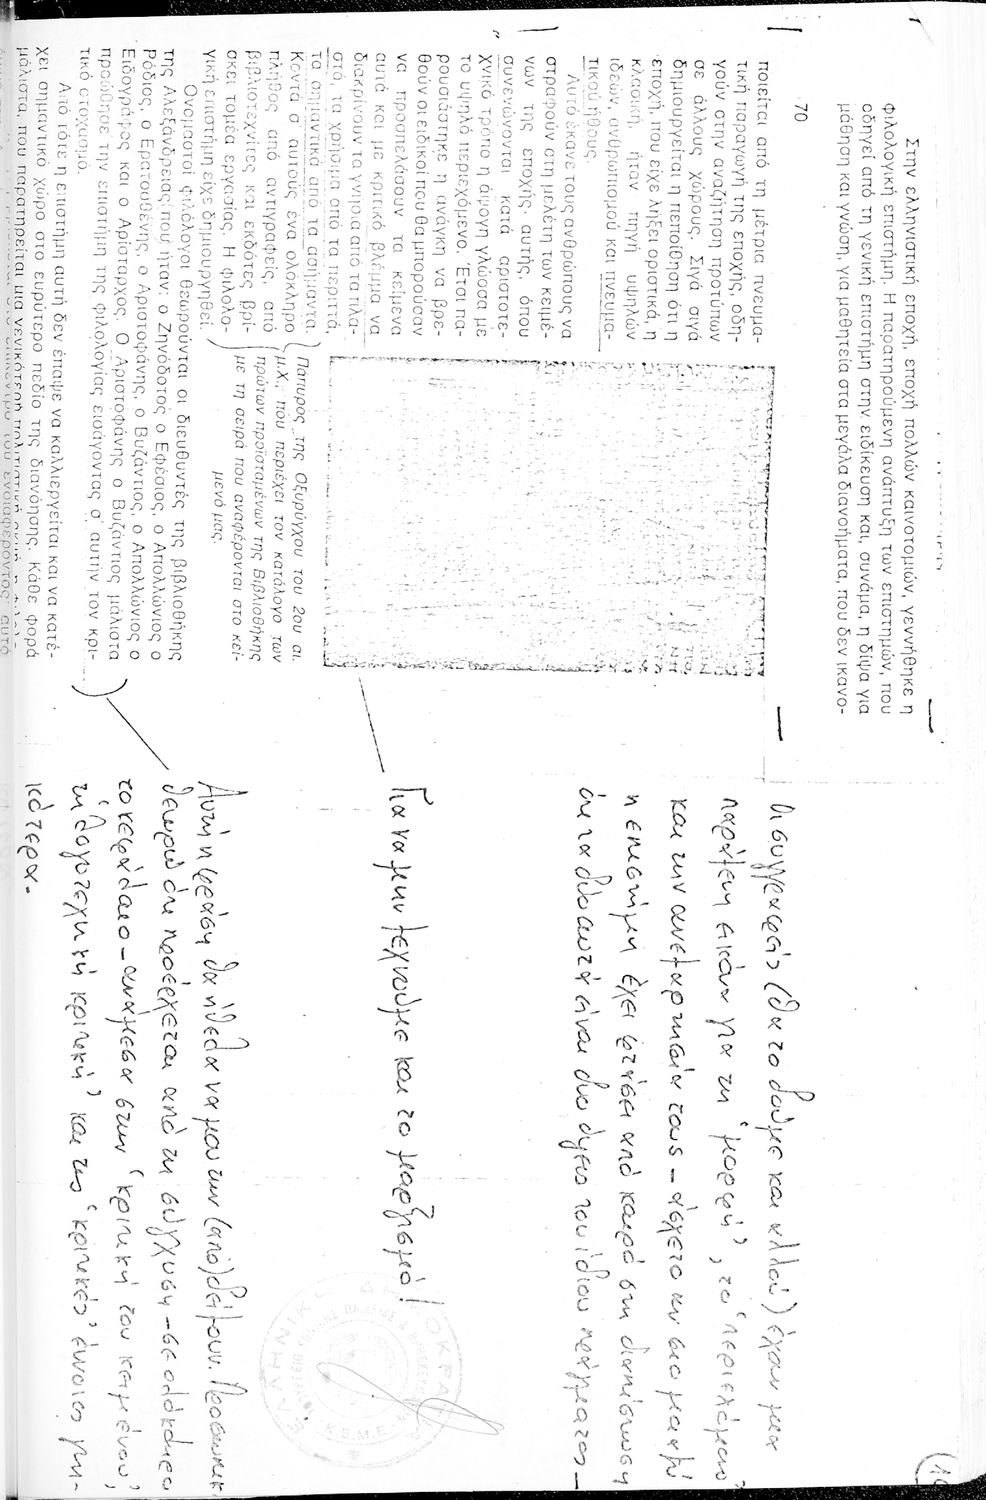 Στην ελληνιστική εποχή, εποχή πολλών καινοτομιών, γεννήθηκε η
φιλολογική επιστήμη. Η παρατηρούμενη ανάπτυξη των επιστημών, που
οδηγεί από τη γενική επιστήμη στην ειδίκευση και, συνάμα, η δίψα για
μάθηση και γνώση, για μαθητεία στα μεγάλα διανοήματα, που δεν ικανο-
70
ποιείται από τη μέτρια πνευμα-
τική παραγωγή της εποχής, οδη-
γούν στην αναζήτηση προτύπων
σε άλλους χώρους. Σιγά σιγά
δημιουργείται η πεποίθηση ότι η
εποχή, που είχε λήξει οριστικά, η
κλασική, ήταν πηγή υψηλών
ιδεών, ανθρωπισμού και πνευμα-
τικού ήθους.
Αυτό έκανε τους ανθρώπους να
στραφούν στη μελέτη των κειμέ-
νων της εποχής αυτής, όπου
συνενώνονται κατά αριστοτε-
χνικό τρόπο η άψογη γλώσσα με
το υψηλό περιεχόμενο. Έτσι πα-
ρουσιάστηκε η ανάγκη να βρε-
θούν οι ειδικοί που θα μπορούσαν
να προσπελάσουν τα κείμενα
αυτά και με κριτικό βλέμμα να
διακρίνουν τα γνήσια από τα πλα-
στά, τα χρήσιμα από τα περιττά,
τα σημαντικά από τα ασήμαντα.
Κοντά σ' αυτούς ένα ολόκληρο
πλήθος από αντιγραφείς, από
βιβλιοτεχνίτες και εκδότες βρί-
σκει τομέα εργασίας. Η φιλολο-
γική επιστήμη είχε δημιουργηθεί.
Πάπυρος της Οξυρύγχου του 2ου αι.
μ.Χ., που περιέχει τον κατάλογο των
πρώτων προϊσταμένων της Βιβλιοθήκης
με τη σειρά που αναφέρονται στο κεί-
μενό μας.
Ονομαστοί φιλόλογοι θεωρούνται οι διευθυντές της βιβλιοθήκης
της Αλεξάνδρειας που ήταν: ο Ζηνόδοτος ο Εφέσιος, ο Απολλώνιος ο
Ρόδιος, ο Ερατοσθένης, ο Αριστοφάνης, ο Βυζάντιος, ο Απολλώνιος ο
Ειδογράφος και ο Αρίσταρχος. Ο Αριστοφάνης ο Βυζάντιος μάλιστα
προώθησε την επιστήμη της φιλολογίας εισάγοντας σ' αυτήν τον κρι-
τικό στοχασμό.
Από τότε η επιστήμη αυτή δεν έπαψε να καλλιεργείται και να κατέ-
χει σημαντικό χώρο στο ευρύτερο πεδίο της διανόησης. Κάθε φορά
μάλιστα, που παρατηρείται μια γενικότερη πολιτιστική
ενδιαφέροντος αυτό
Οι συγγραφείς (θα το δούμε και αλλού) έχουν μια
παράξενη εικόνα για τη 'μορφή', το 'περιεχόμενο'
και την ανεξαρτησία τους – άσχετο αν στο μεταξύ
η επιστήμη έχει φτάσει από καιρό στη διαπίστωση
ότι τα δύο αυτά είναι δυο όψεις του ίδιου πράγματος –
Για να μην ξεχνούμε και το μαρξισμό!
Αυτή η φράση θα ήθελα να μου την (απο)δείξουν. Προσωπικά
θεωρώ ότι προέρχεται από τη σύγχυση – σε ολόκληρο
το κεφάλαιο – ανάμεσα στην 'κριτική του κειμένου',
τη 'λογοτεχνική κριτική' και τις 'κριτικές' έννοιες γενι-
κότερα.
ΕΛΛΗΝΙΚΗ ΔΗΜΟΚΡΑΤΙΑ
Κ.Ε.Μ.Ε.